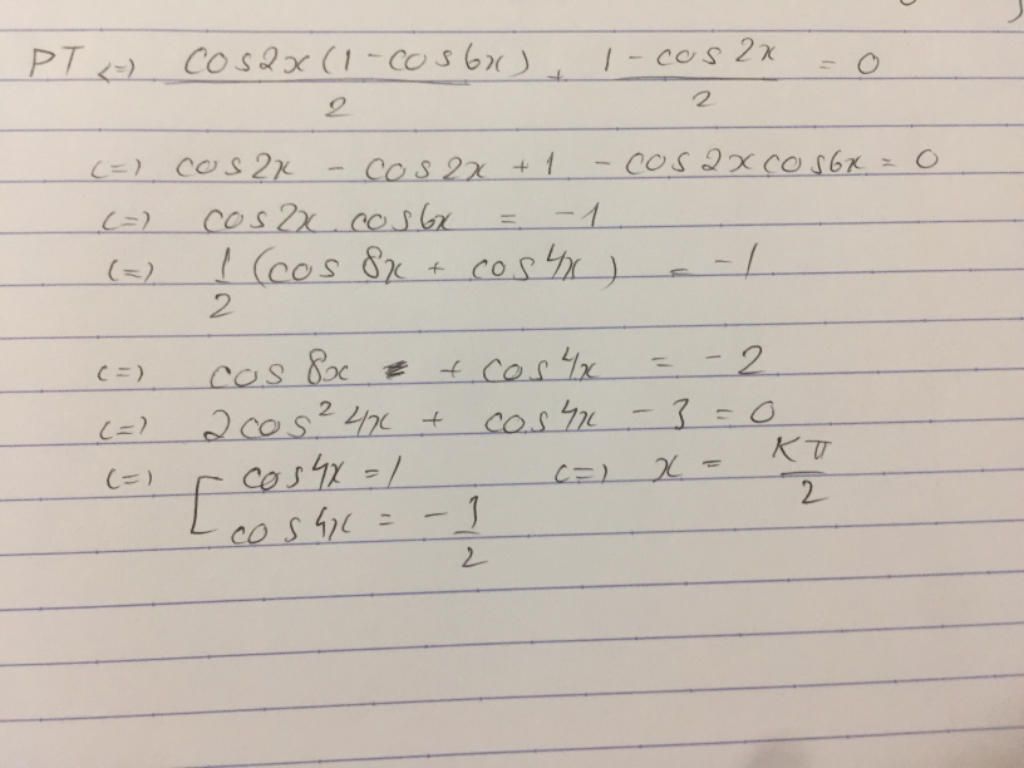 PT <=> cos2x(1-cos6x)/2 + 1-cos2x/2 = 0
<=> cos2x - cos2x + 1 - cos2xcos6x = 0
<=> cos2x.cos6x = -1
<=> 1/2 (cos8x + cos4x) = -1
<=> cos8x + cos4x = -2
<=> 2cos²4x + cos4x - 3 = 0
<=> [ cos4x = 1 <=> x = Kπ/2
cos4x = -3/2